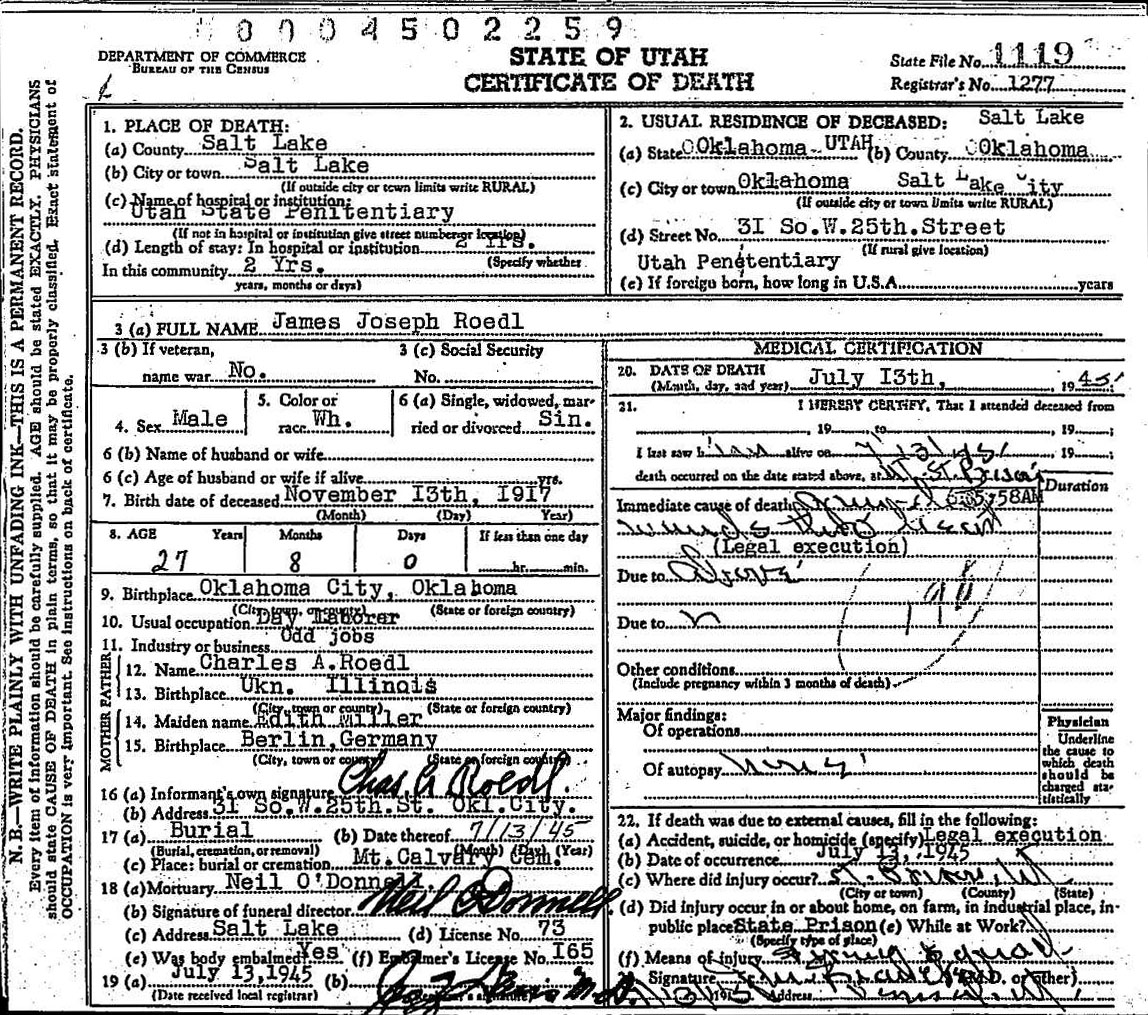 0004502259
DEPARTMENT OF COMMERCE
BUREAU OF THE CENSUS
STATE OF UTAH
CERTIFICATE OF DEATH
State File No. 1119
Registrar's No. 1277
N. B.—WRITE PLAINLY WITH UNFADING INK—THIS IS A PERMANENT RECORD.
Every item of information should be carefully supplied. AGE should be stated EXACTLY. PHYSICIANS
should state CAUSE OF DEATH in plain terms, so that it may be properly classified. Exact statement of
OCCUPATION is very important. See instructions on back of certificate.
1. PLACE OF DEATH:
(a) County Salt Lake
(b) City or town Salt Lake
(If outside city or town limits write RURAL)
(c) Name of hospital or institution:
Utah State Penitentiary
(If not in hospital or institution give street number or location)
(d) Length of stay: In hospital or institution 2 Yrs.
(Specify whether
In this community 2 Yrs.
years, months or days)
2. USUAL RESIDENCE OF DECEASED: Salt Lake
(a) State Oklahoma UTAH (b) County Oklahoma
(c) City or town Oklahoma Salt Lake City
(If outside city or town limits write RURAL)
(d) Street No. 31 So.W.25th.Street
(If rural give location)
Utah Penetentiary
(e) If foreign born, how long in U.S.A. years
3 (a) FULL NAME James Joseph Roedl
3 (b) If veteran,
name war No.
3 (c) Social Security
No.
4. Sex Male
5. Color or
race Wh.
6 (a) Single, widowed, mar-
ried or divorced Sin.
6 (b) Name of husband or wife
6 (c) Age of husband or wife if alive yrs.
7. Birth date of deceased November 13th, 1917
(Month) (Day) Year)
8. AGE Years Months Days If less than one day
27 8 0 hr. min.
9. Birthplace Oklahoma City, Oklahoma
(City, town, or county) (State or foreign country)
10. Usual occupation Day Laborer
11. Industry or business Odd jobs
FATHER
12. Name Charles A.Roedl
13. Birthplace Ukn. Illinois
(City, town or county) (State or foreign country)
MOTHER
14. Maiden name Edith Miller
15. Birthplace Berlin,Germany
(City, town or county) (State or foreign country)
16 (a) Informant's own signature Chas. A Roedl.
(b) Address 31 So.W.25th.St. Okl.City.
17 (a) Burial (b) Date thereof 7/13/45
(Burial, cremation, or removal) (Month) (Day) (Year)
(c) Place: burial or cremation Mt.Calvary Cem.
18 (a) Mortuary Neil O'Donnell.
(b) Signature of funeral director Neil O'Donnell
(c) Address Salt Lake (d) License No. 73
(e) Was body embalmed? Yes (f) Embalmer's License No. 165
19 (a) July 13,1945 (b)
(Date received local registrar)
MEDICAL CERTIFICATION
20. DATE OF DEATH
(Month, day, and year) July 13th, , 1945
21. I HEREBY CERTIFY, That I attended deceased from
, 19 , to , 19 ;
I last saw him alive on
death occurred on the date stated above, at
Duration
Immediate cause of death 58AM
wounds thro heart
(Legal execution)
Due to Above
Due to
198
Other conditions
(Include pregnancy within 3 months of death)
Major findings:
Of operations
Of autopsy
Physician
Underline
the cause to
which death
should be
charged sta-
tistically
22. If death was due to external causes, fill in the following:
(a) Accident, suicide, or homicide (specify) Legal execution
(b) Date of occurrence July 13, ,1945
(c) Where did injury occur?
(City or town) (County) (State)
(d) Did injury occur in or about home, on farm, in industrial place, in-
public place State Prison (e) While at Work?
(Specify type of place)
(f) Means of injury Firing Squad
Signature (M.D. or other)
Address